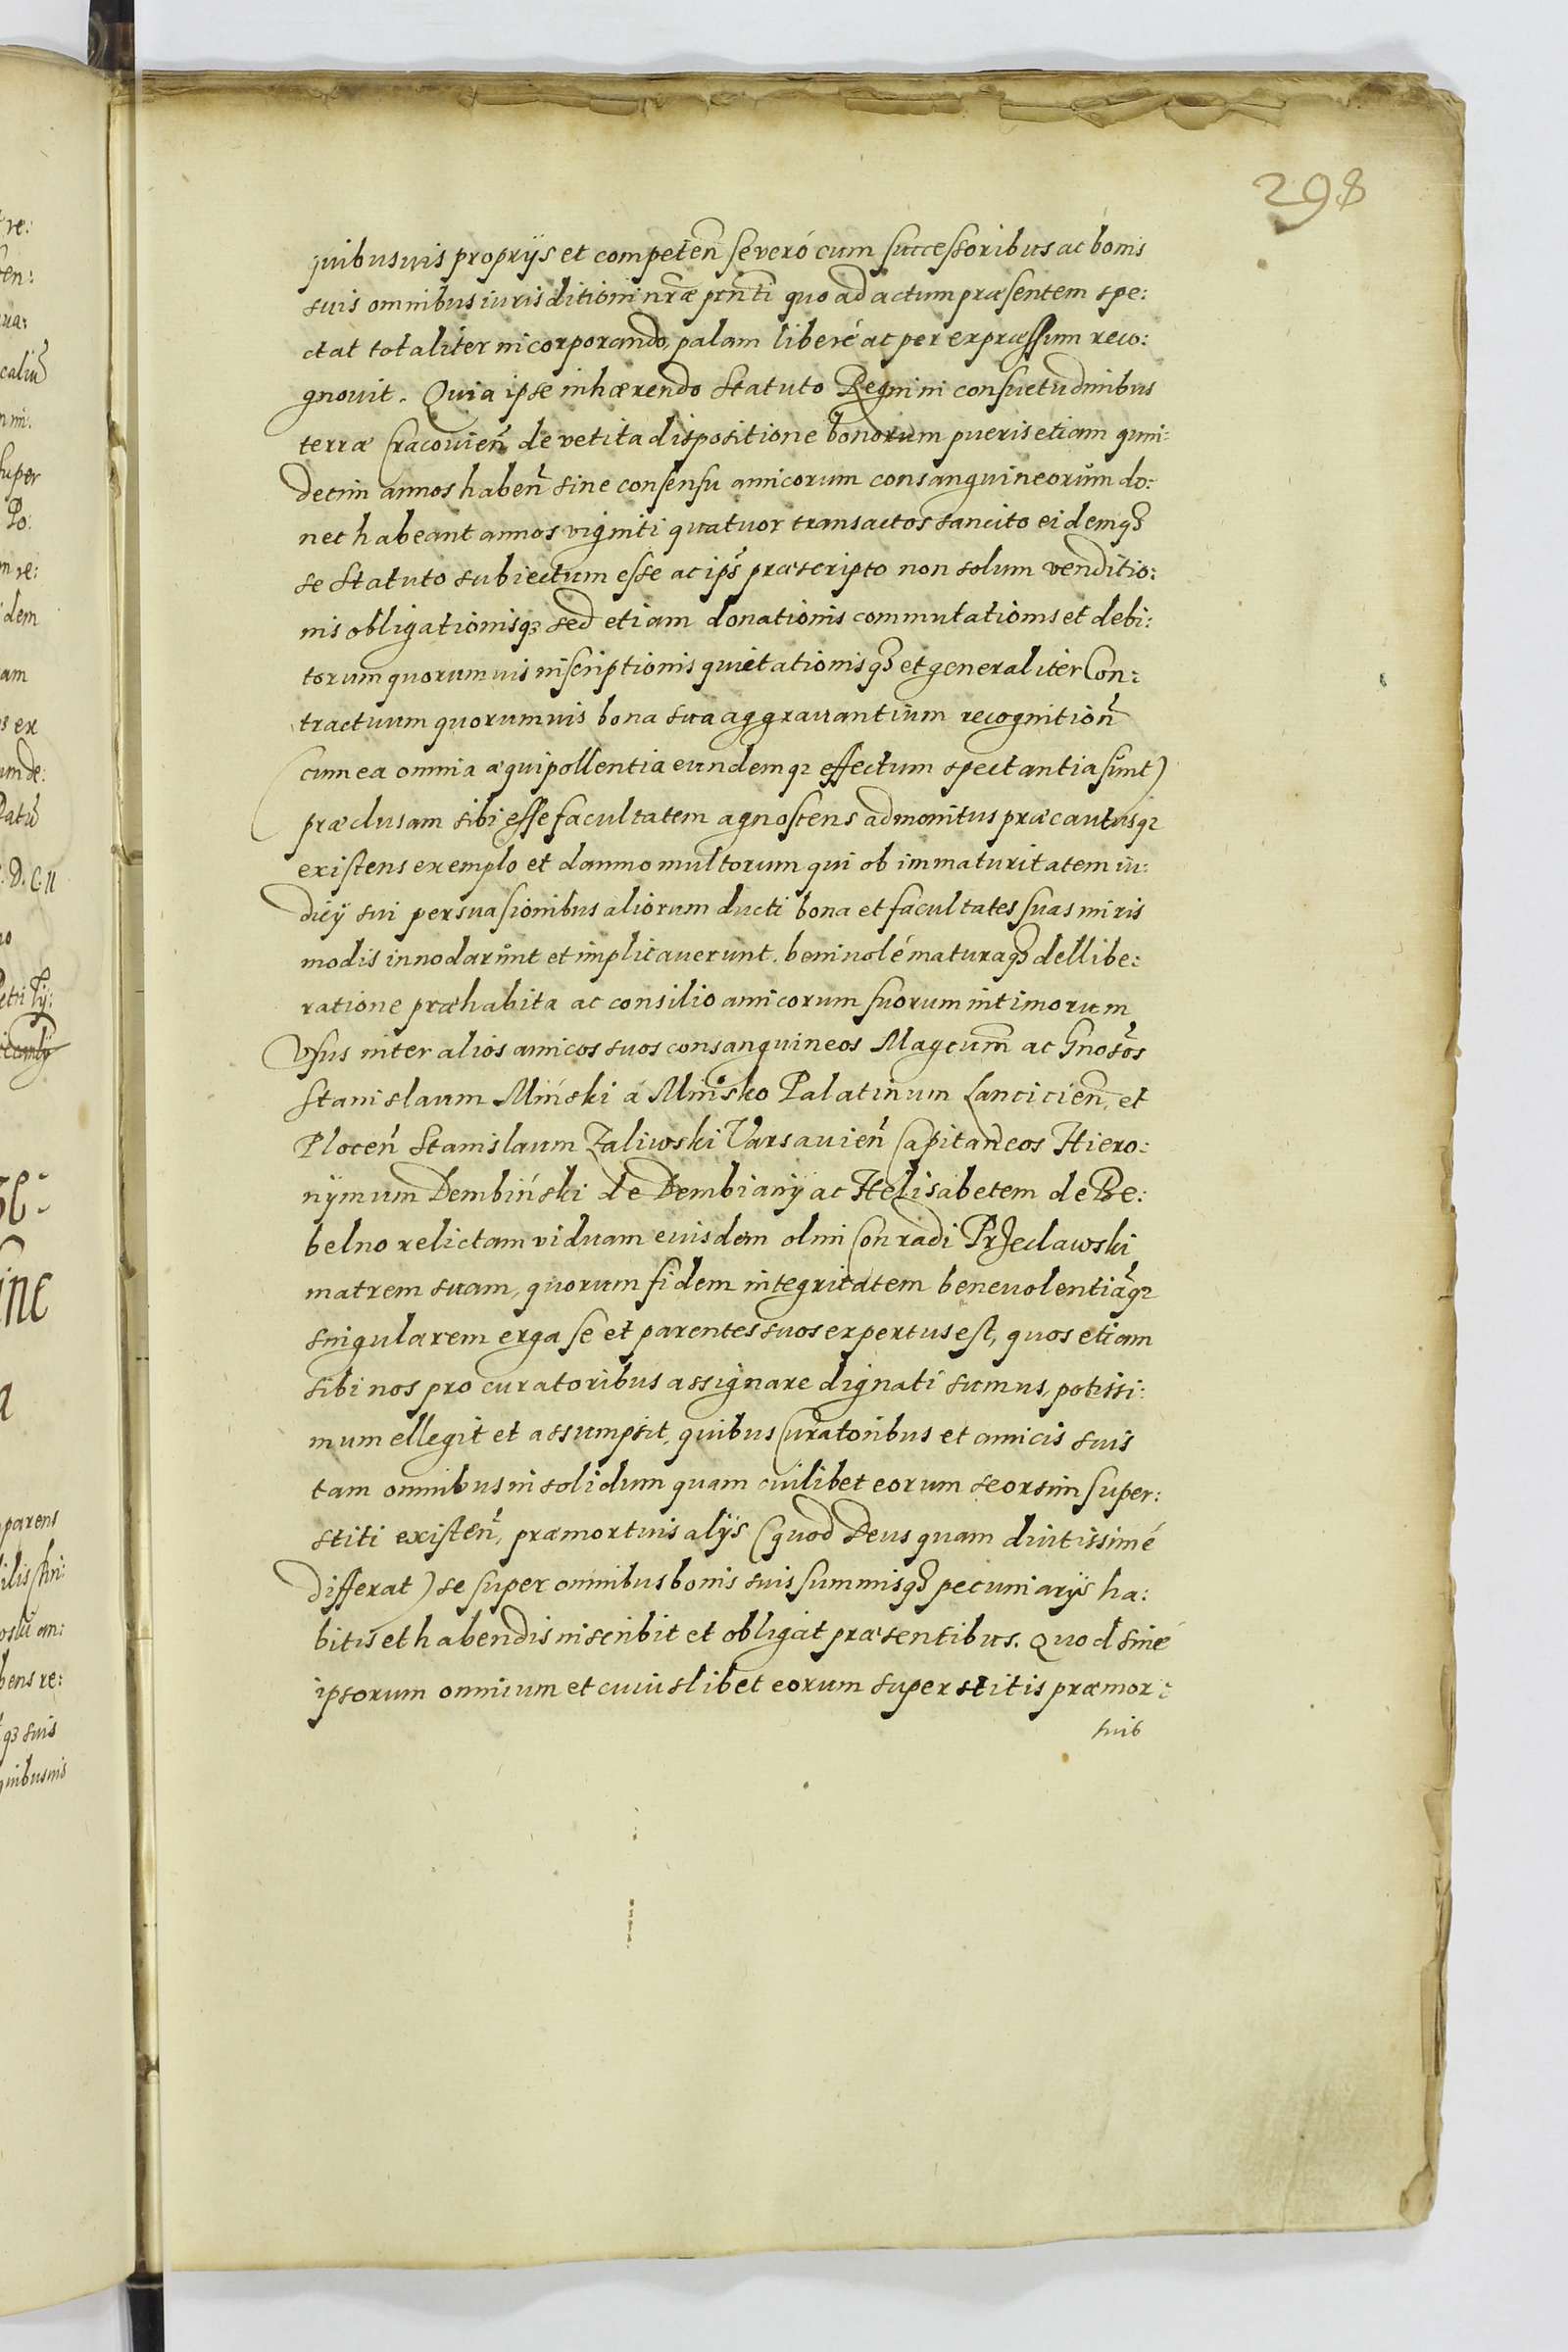 298
quibusuis proprijs et competeñ se veró cum successoribus ac bonis
suis omnibus iurisditioni nr̃æ pñti quo ad actum præsentem spe:
ctat totaliter incorporando, palam liberé ac per expræssum reco:
gnouit. Quia ipse inhærendo Statuto Regni in consuetudinibus
terræ Cracouieñ de vetita dispositione bonorum pueris etiam quin:
decim annos habeñ sine consensu amicorum consanguineorum do:
nec habeant annos viginti quatuor transactos sancito eidemq3
se Statuto subiectum esse ac ips̃ præscripto non solum venditio:
nis obligationisq3 sed etiam donationis commutationis et debi:
torum quorumuis inscriptionis quietationisq3 et generaliter Con:
tractuum quorumuis bona sua aggrauantium recognitioñ
(cum ea omnia æquipollentia eundemq3 effectum spectantia sunt)
præclusam sibi esse facultatem agnoscens admonitus præcautusq3
existens exemplo et damno multorum qui ob immaturitatem iu:
dicij sui persuasionibus aliorum ducti bona et facultates suas miris
modis innodarunt et implicauerunt. beniuolé maturaq3 dellibe:
ratione præhabita ac consilio amicorum suorum intimorum
Vsus inter alios amicos suos consanguineos Magcum̃ ac Gnosõs
Stanislaum Miński á Minsko Palatinum Lancicieñ, et
Ploceñ Stanislaum Zaliwski Varsauieñ Capitaneos Hiero:
nÿmum Dembiński de Dembiany ac Helisabetem de Be:
belno relictam viduam euisdem olim Conradi Przeclawski
matrem suam, quorum fidem integritatem beneuolentiãq3
singularem erga se et parentes suos expertus est, quos etiam
sibi nos pro curatoribus assignare dignati sumus, potissi:
mum ellegit et assumpsit, quibus Curatoribus et amicis suis
tam omnibus in solidum quam cuilibet eorum seorsim super:
stiti existeñ, præmortuis alijs (quod Deus quam diutissimé
differat) se super omnibus bonis suis summisq3 pecuniarijs ha:
bitis et habendis inscribit et obligat præsentibus. Quod sine
ipsorum omnium et cuiuslibet eorum superstitis præmor:
tuis